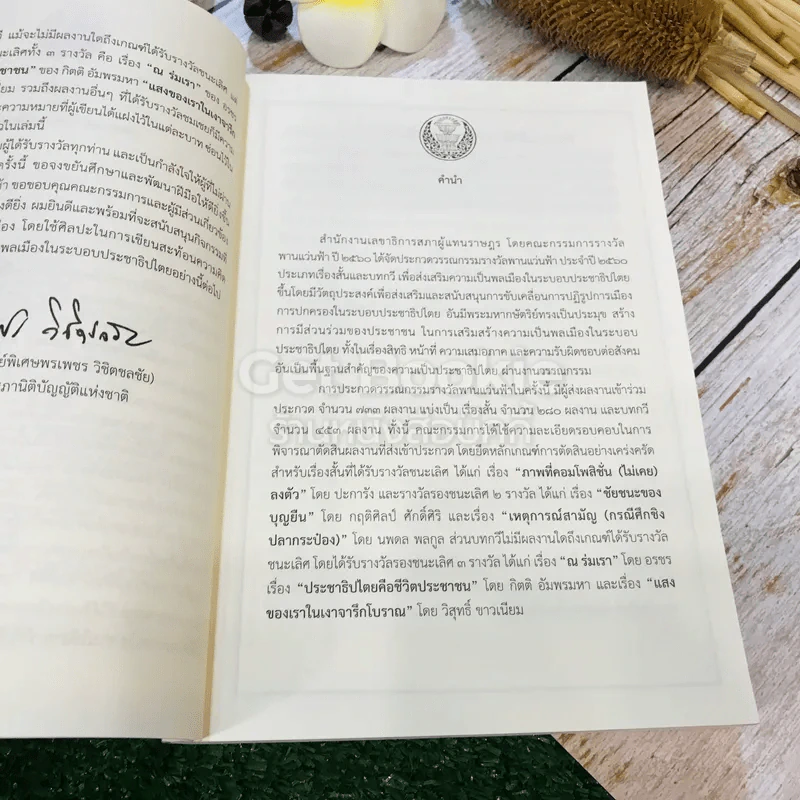 แม้จะไม่มีผลงานใดถึงเกณฑ์ได้รับรางวัลชนะเลิศ
นะเลิศทั้ง ๓ รางวัล คือ เรื่อง "ณ ร่มเรา" ของ อรชร
ของ กิตติ อัมพรมหา "แสงของเราในเงาจารึก
รวมถึงผลงานอื่นๆ ที่ได้รับรางวัลชมเชยก็มีความ
ความหมายที่ผู้เขียนได้แฝงไว้ในแต่ละบาท ซ่อนไว้ใน
ในเล่มนี้
ผู้ได้รับรางวัลทุกท่าน และเป็นกำลังใจให้ผู้ที่ไม่ผ่าน
ครั้งนี้ ขอจงขยันศึกษาและพัฒนาฝีมือให้ดียิ่งขึ้น
ขอขอบคุณคณะกรรมการและผู้มีส่วนเกี่ยวข้อง
ดียิ่ง ผมยินดีและพร้อมที่จะสนับสนุนกิจกรรมดี
โดยใช้ศิลปะในการเขียนสะท้อนความคิด
พลเมืองในระบอบประชาธิปไตยอย่างนี้ต่อไป
ย์พิเศษพรเพชร วิชิตชลชัย)
ภานิติบัญญัติแห่งชาติ
คำนำ
สำนักงานเลขาธิการสภาผู้แทนราษฎร โดยคณะกรรมการรางวัล
พานแว่นฟ้า ปี ๒๕๖๐ ได้จัดประกวดวรรณกรรมรางวัลพานแว่นฟ้า ประจำปี ๒๕๖๐
ประเภทเรื่องสั้นและบทกวี เพื่อส่งเสริมความเป็นพลเมืองในระบอบประชาธิปไตย
ขึ้นโดยมีวัตถุประสงค์เพื่อส่งเสริมและสนับสนุนการขับเคลื่อนการปฏิรูปการเมือง
การปกครองในระบอบประชาธิปไตย อันมีพระมหากษัตริย์ทรงเป็นประมุข สร้าง
การมีส่วนร่วมของประชาชน ในการเสริมสร้างความเป็นพลเมืองในระบอบ
ประชาธิปไตย ทั้งในเรื่องสิทธิ หน้าที่ ความเสมอภาค และความรับผิดชอบต่อสังคม
อันเป็นพื้นฐานสำคัญของความเป็นประชาธิปไตย ผ่านงานวรรณกรรม
การประกวดวรรณกรรมรางวัลพานแว่นฟ้าในครั้งนี้ มีผู้ส่งผลงานเข้าร่วม
ประกวด จำนวน ๗๓๓ ผลงาน แบ่งเป็น เรื่องสั้น จำนวน ๒๘๐ ผลงาน และบทกวี
จำนวน ๔๕๓ ผลงาน ทั้งนี้ คณะกรรมการได้ใช้ความละเอียดรอบคอบในการ
พิจารณาตัดสินผลงานที่ส่งเข้าประกวด โดยยึดหลักเกณฑ์การตัดสินอย่างเคร่งครัด
สำหรับเรื่องสั้นที่ได้รับรางวัลชนะเลิศ ได้แก่ เรื่อง "ภาพที่คอมโพสิชั่น (ไม่เคย)
ลงตัว" โดย ปะการัง และรางวัลรองชนะเลิศ ๒ รางวัล ได้แก่ เรื่อง "ชัยชนะของ
บุญยืน" โดย กฤติศิลป์ ศักดิ์ศิริ และเรื่อง "เหตุการณ์สามัญ (กรณีศึกชิง
ปลากระป๋อง)" โดย นพดล พลกูล ส่วนบทกวีไม่มีผลงานใดถึงเกณฑ์ได้รับรางวัล
ชนะเลิศ โดยได้รับรางวัลรองชนะเลิศ ๓ รางวัล ได้แก่ เรื่อง "ณ ร่มเรา" โดย อรชร
เรื่อง "ประชาธิปไตยคือชีวิตประชาชน" โดย กิตติ อัมพรมหา และเรื่อง "แสง
ของเราในเงาจารึกโบราณ" โดย วิสุทธิ์ ขาวเนียม